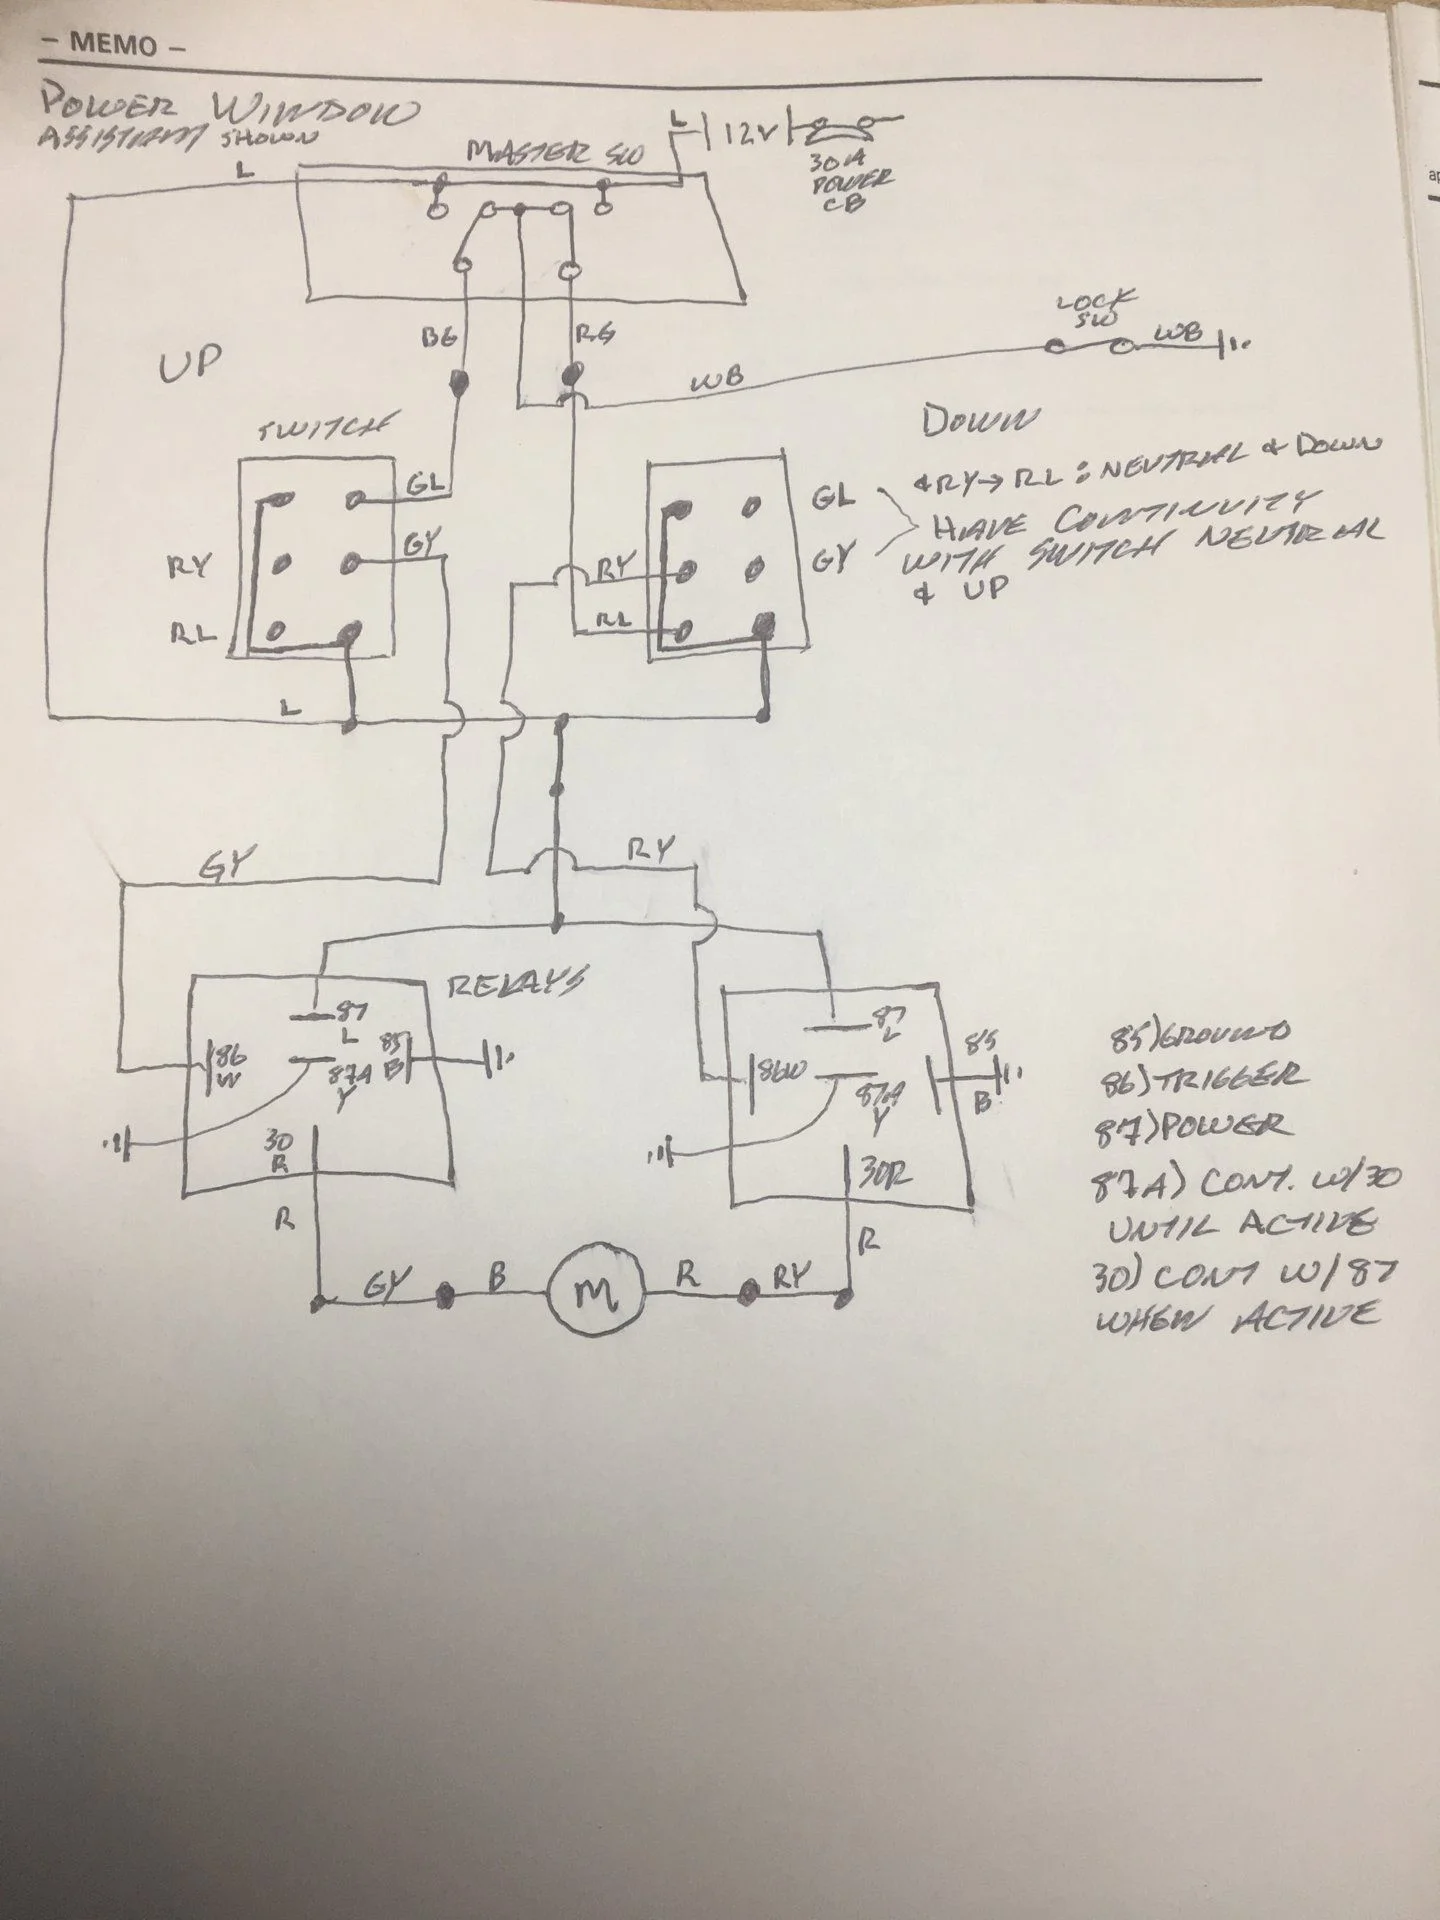 - MEMO -
POWER WINDOW
ASSISTANT SHOWN
MASTER SW
L
L
12V
30A
POWER
CB
BG
RG
LOCK
SW
WB
WB
UP
SWITCH
DOWN
GL
GY
RY
RL
RY
RL
GL
GY
& RY → RL : NEUTRAL & DOWN
HAVE CONTINUITY
WITH SWITCH NEUTRAL
& UP
L
GY
RY
RELAYS
87
L
86
W
87A
Y
85
B
30
R
87
L
86W
87A
Y
85
B
30R
R
R
GY
B
M
R
RY
85) GROUND
86) TRIGGER
87) POWER
87A) CONT. W/30
UNTIL ACTIVE
30) CONT W/87
WHEN ACTIVE